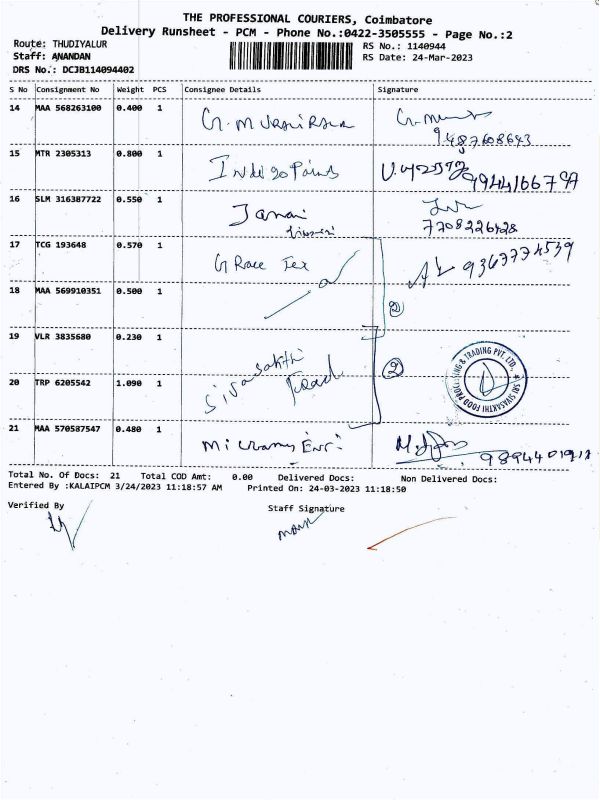 THE PROFESSIONAL COURIERS, Coimbatore
Delivery Runsheet - PCM - Phone No.:0422-3505555 - Page No.:2
Route: THUDIYALUR
RS No.: 1140944
Staff: ANANDAN
RS Date: 24-Mar-2023
DRS No.: DCJB114094402
S No Consignment No Weight PCS Consignee Details Signature
14 MAA 568263100 0.400 1
9487608643
15 MTR 2305313 0.800 1 Indigo Paints
16 SLM 316387722 0.550 1 Janani
7708226428
17 TCG 193648 0.570 1 G Race Tex 9363774539
18 MAA 569910351 0.500 1 2
19 VLR 3835680 0.230 1 Sivasakthi
20 TRP 6205542 1.090 1 2
SRI SIVASAKTHI FOOD PROCESSING & TRADING PVT. LTD.,
21 MAA 570587547 0.480 1
Total No. Of Docs: 21 Total COD Amt: 0.00 Delivered Docs: Non Delivered Docs:
Entered By :KALAIPCM 3/24/2023 11:18:57 AM Printed On: 24-03-2023 11:18:50
Verified By Staff Signature